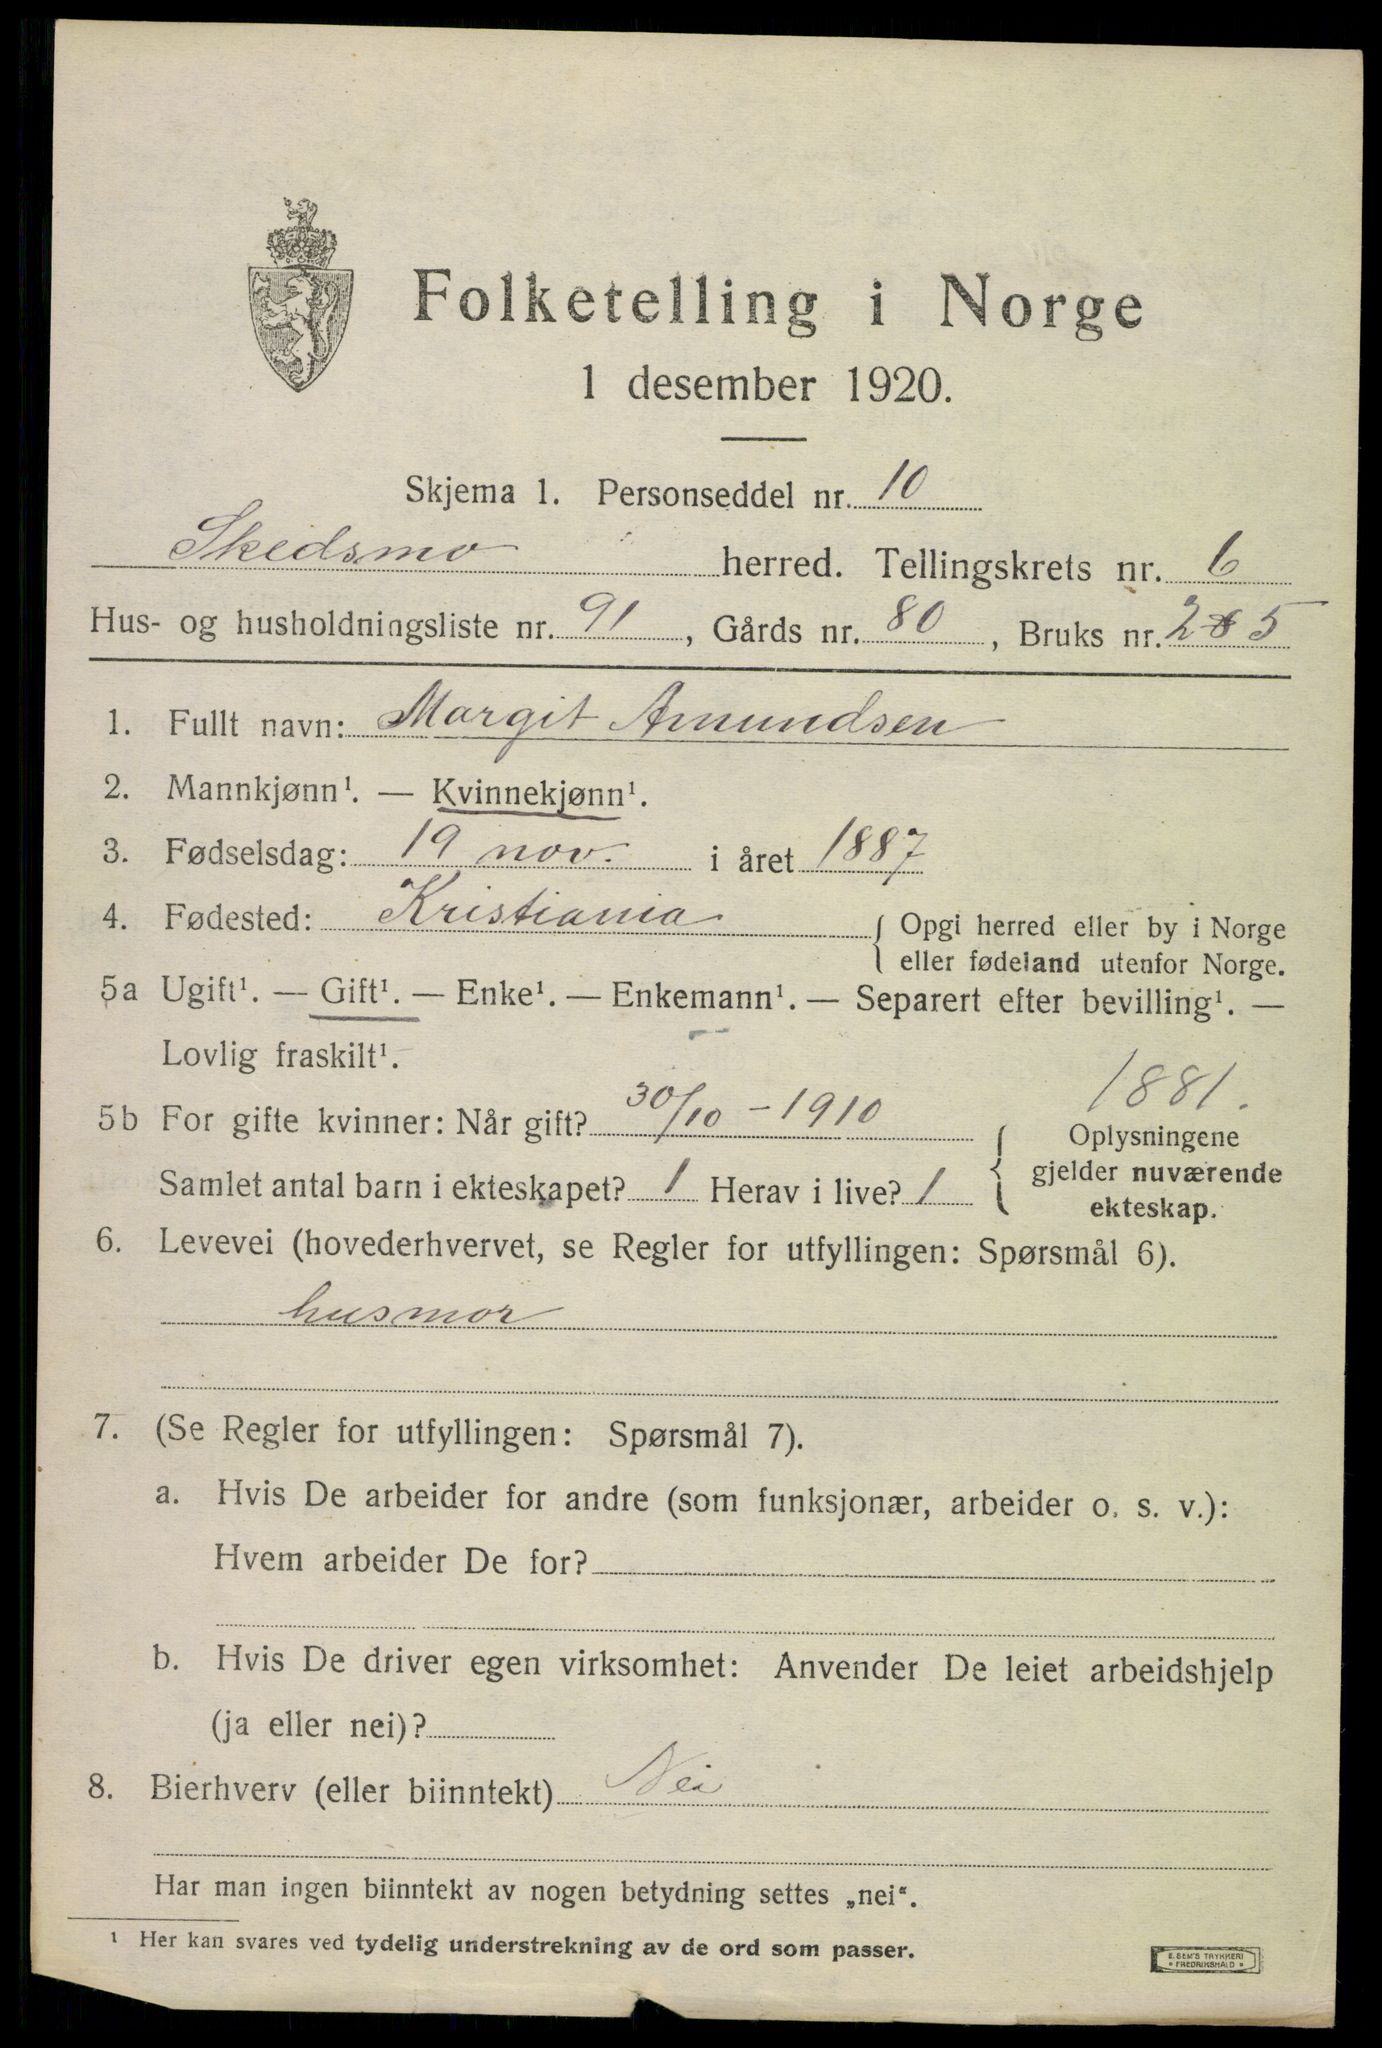 Folketelling i Norge
1 desember 1920.
Skjema 1. Personseddel nr. 10
Skedsmo herred. Tellingskrets nr. 6
Hus- og husholdningsliste nr. 91, Gårds nr. 80, Bruks nr. 2 5
1. Fullt navn: Margit Amundsen
2. Mannkjønn¹. — Kvinnekjønn¹.
3. Fødselsdag: 19 nov. i året 1887
4. Fødested: Kristiania { Opgi herred eller by i Norge
eller fødeland utenfor Norge.
5a Ugift¹. — Gift¹. — Enke¹. — Enkemann¹. — Separert efter bevilling¹. —
Lovlig fraskilt¹.
1881.
5b For gifte kvinner: Når gift? 30/10 - 1910
Samlet antal barn i ekteskapet? 1 Herav i live? 1
{ Oplysningene
gjelder nuværende
ekteskap.
6. Levevei (hovederhvervet, se Regler for utfyllingen: Spørsmål 6).
husmor
7. (Se Regler for utfyllingen: Spørsmål 7).
a. Hvis De arbeider for andre (som funksjonær, arbeider o. s. v.):
Hvem arbeider De for?
b. Hvis De driver egen virksomhet: Anvender De leiet arbeidshjelp
(ja eller nei)?
8. Bierhverv (eller biinntekt) Nei
Har man ingen biinntekt av nogen betydning settes „nei“.
¹ Her kan svares ved tydelig understrekning av de ord som passer.
E. SEM'S TRYKKERI
* FREDRIKSHALD *